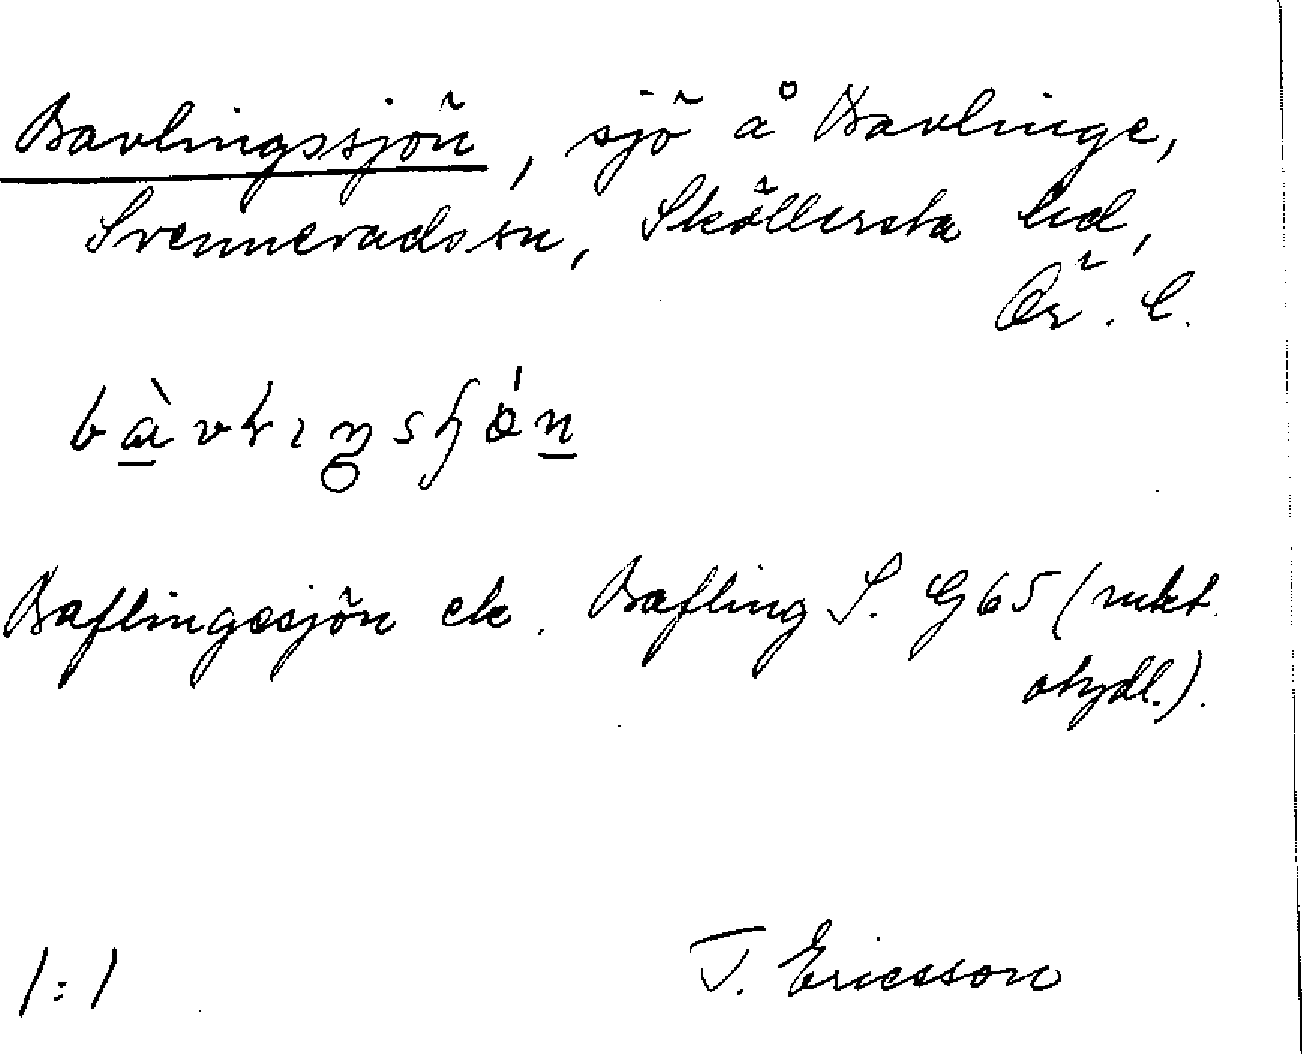 Bavlingssjön, sjö å Bavlinge,
Svennevads sn, Sköllersta hd,
Ör. l.
Baflingesjön ek. Bafling S. G65 (
otydl.).
1:1 T. Ericsson